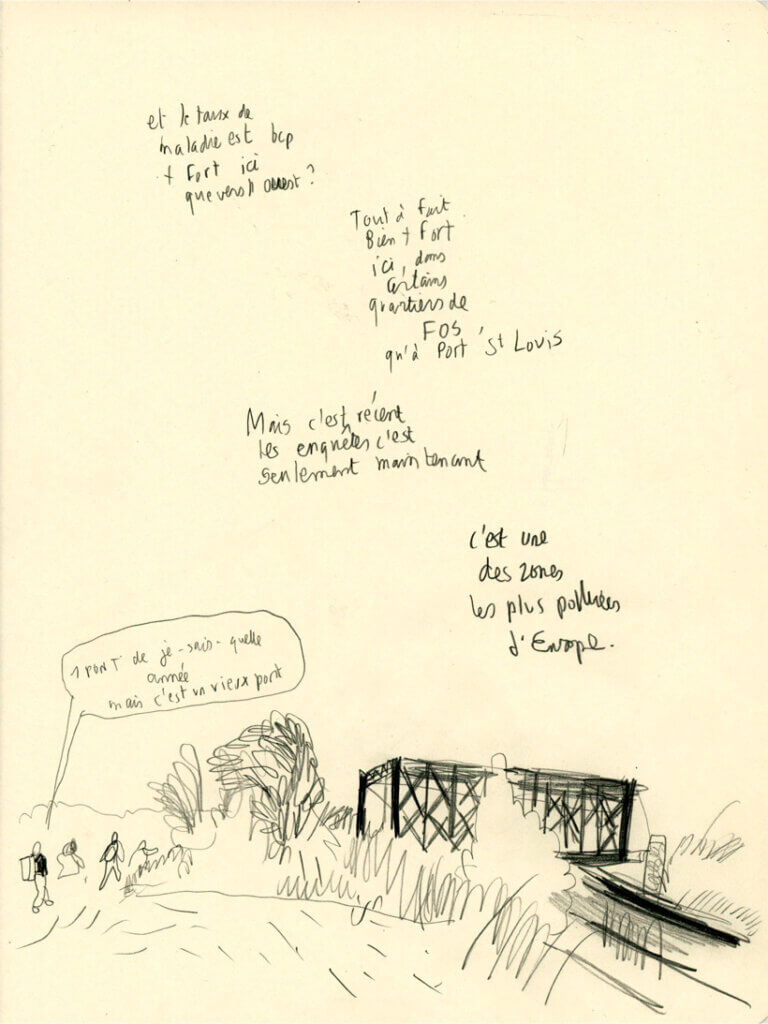 et le taux de
maladie est bcp
+ fort ici
que vers l'ouest?
Tout à fait
Bien + fort
ici, dans
certains
quartiers de
FOS
qu'à Port St Louis
Mais c'est récent
les enquêtes c'est
seulement maintenant
c'est une
des zones
les plus polluées
d'Europe.
1 PONT de je-sais-quelle
année
mais c'est un vieux pont